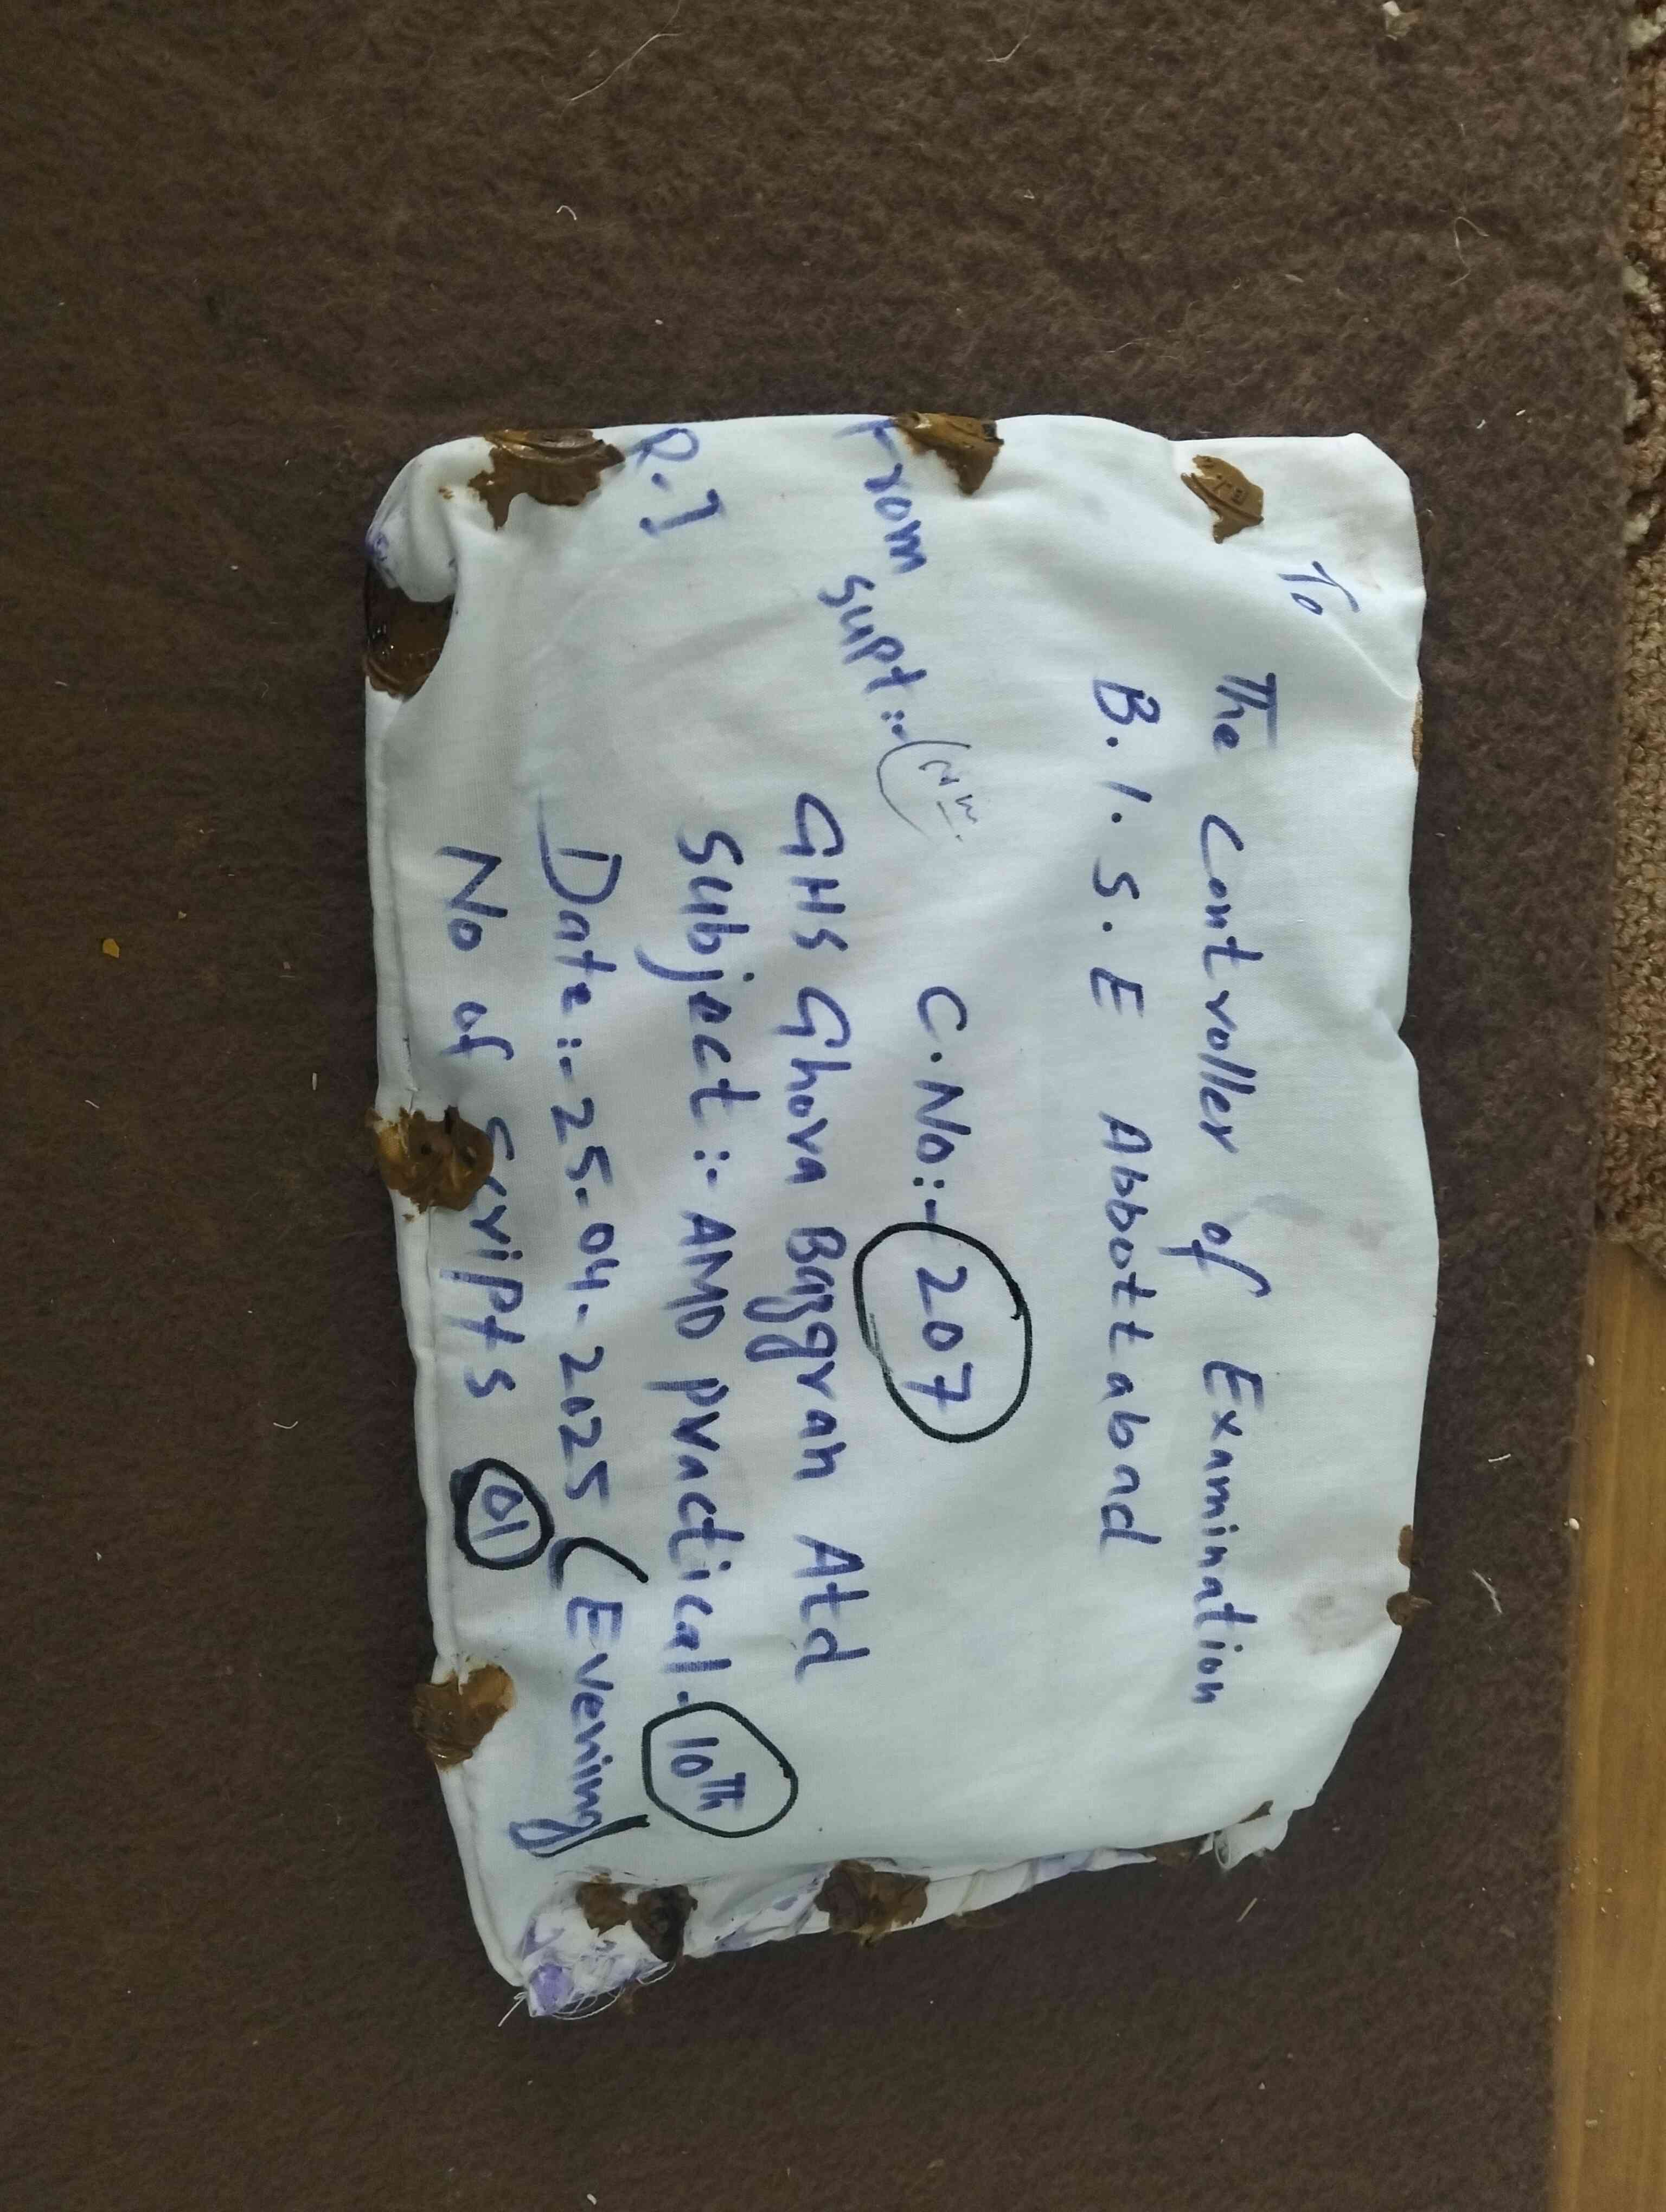 To
The Controller of Examination
B.I.S.E Abbottabad
C.No:- 207
From supt:-
GHS Ghora Bazgran Atd
Subject:- AMD practical. 10TH
P.I
Date:- 25-04-2025 (Evening)
No of Scripts 01